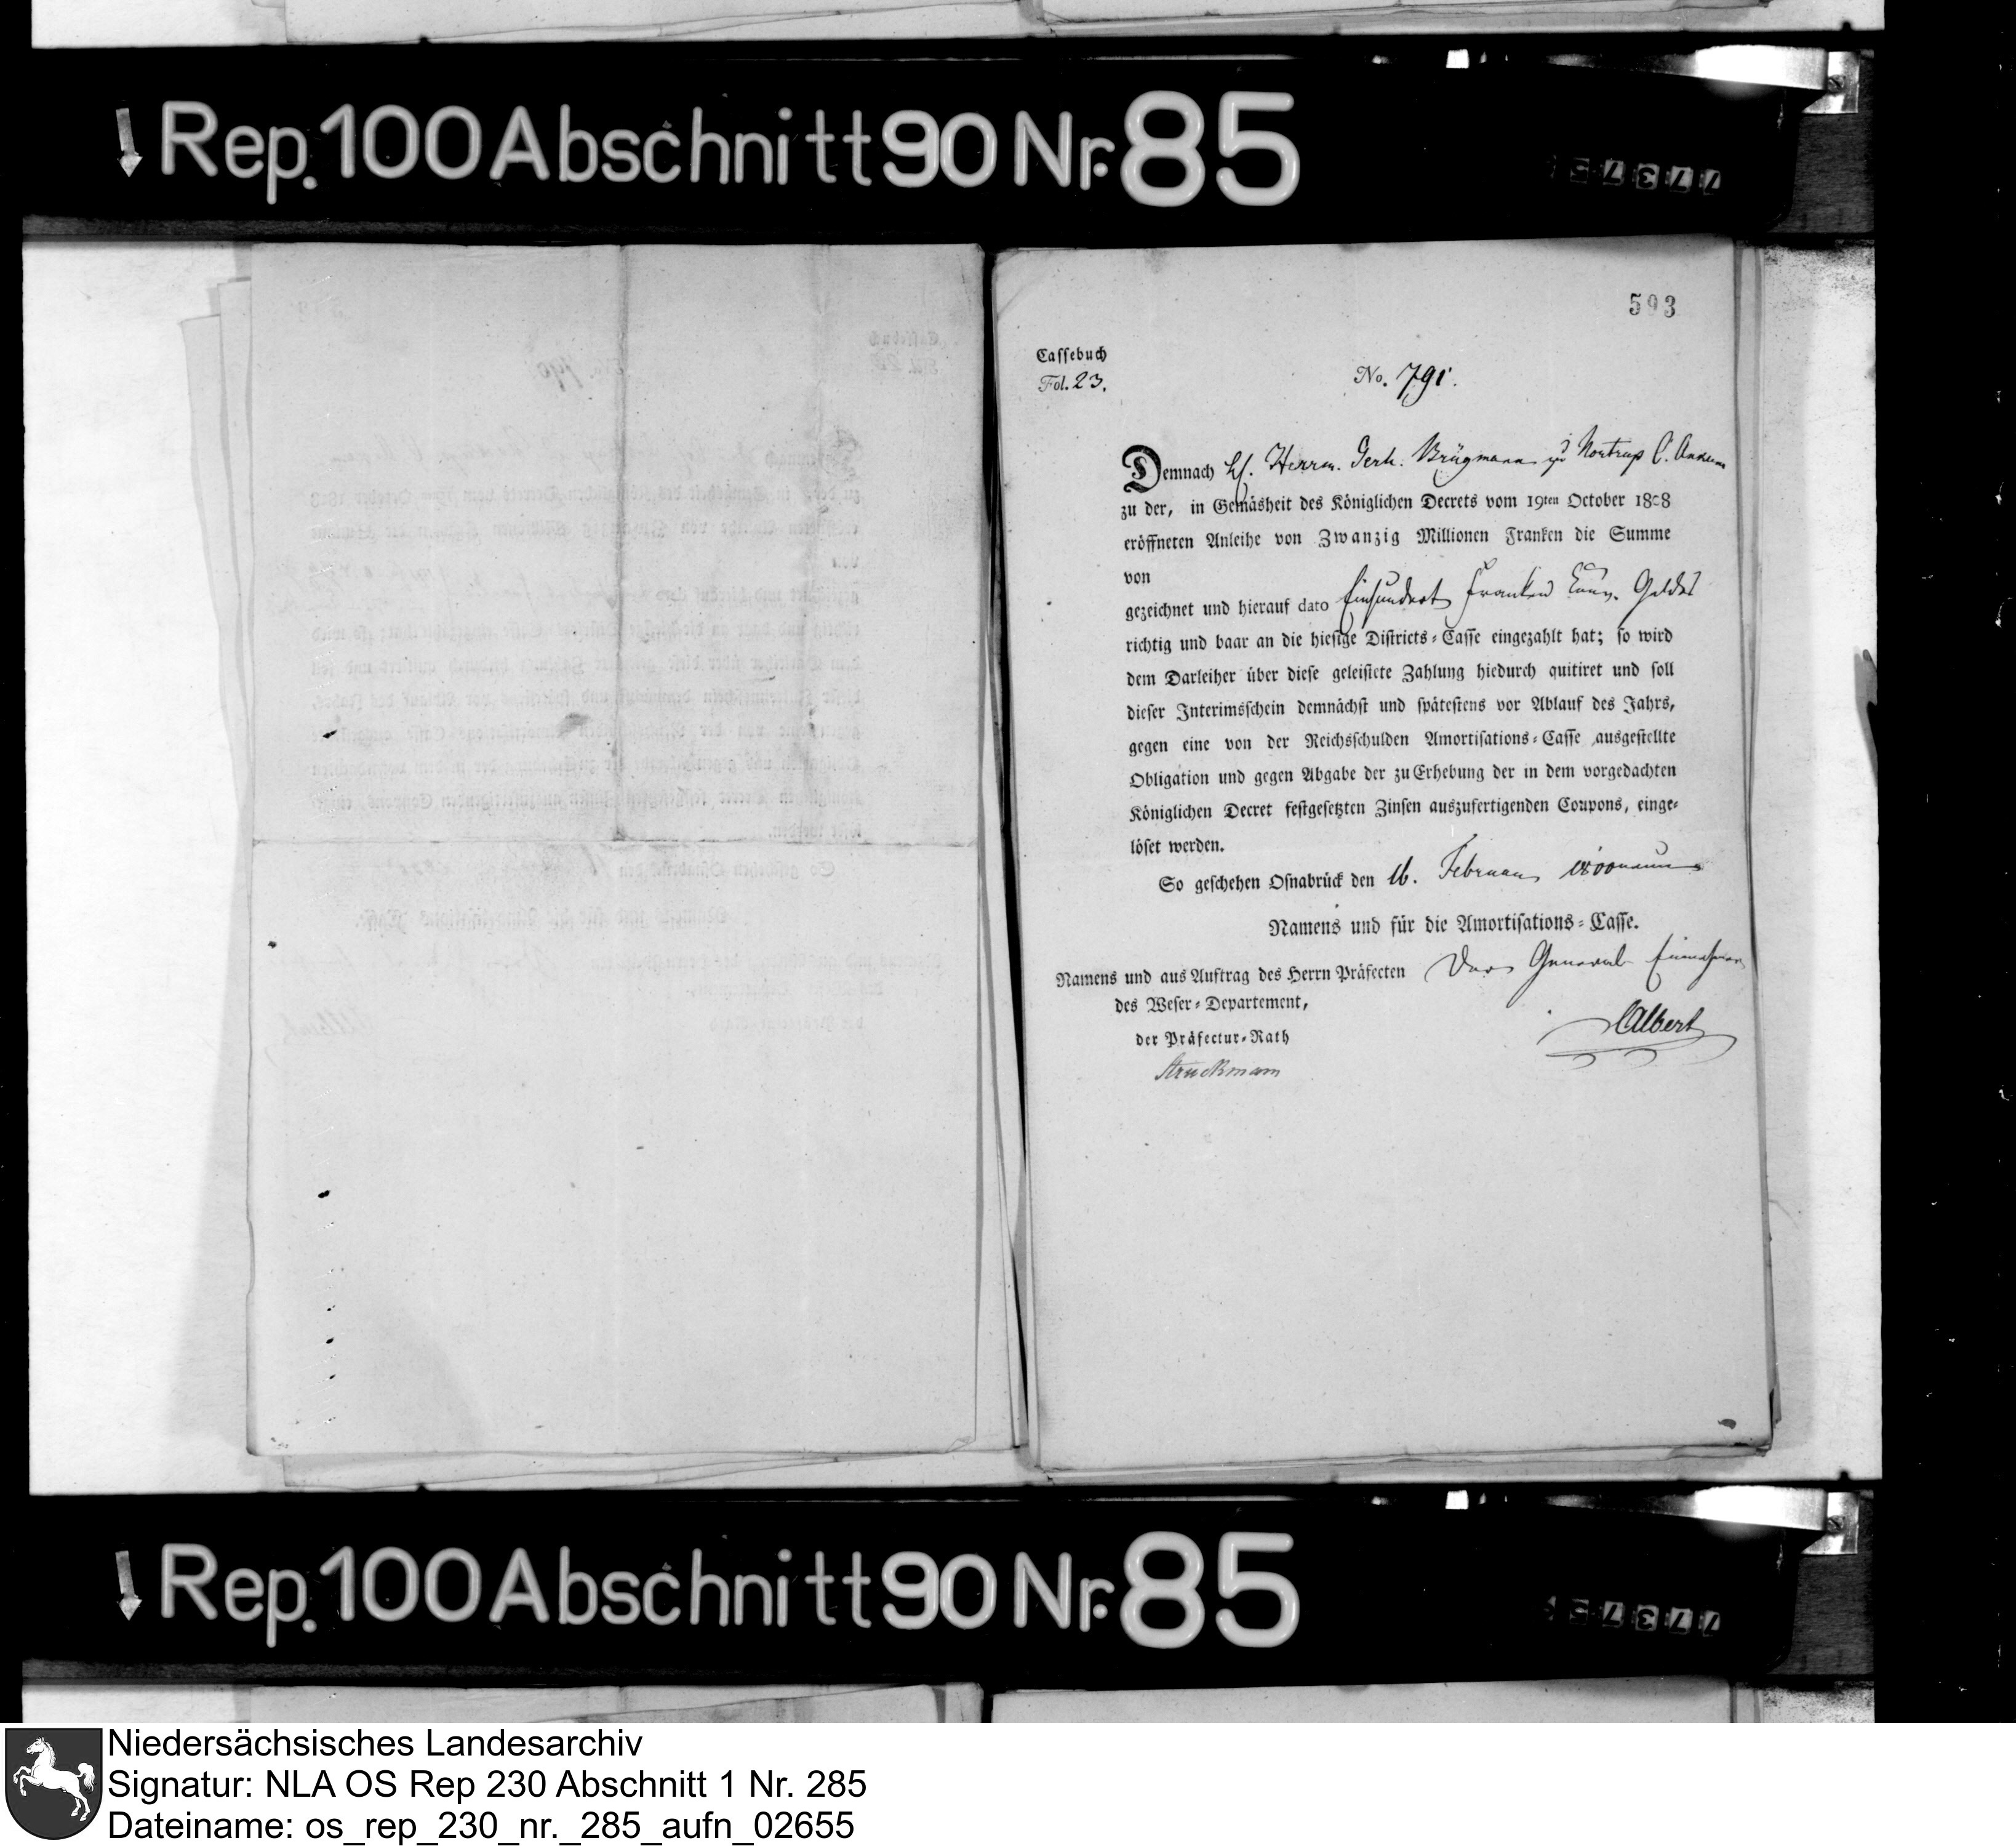 Rep. 100 Abschnitt 90 Nr. 85
593
Cassebuch
Fol. 23.
No. 791.
Demnach Hr. Herrm. Gerh. Brügmann zu Nortrup C. Ankum
zu der, in Gemäsheit des Königlichen Decrets vom 19ten October 1808
eröffneten Anleihe von Zwanzig Millionen Franken die Summe
von
gezeichnet und hierauf dato Einhundert Franken Conv. Geldes
richtig und baar an die hiesige Districts-Casse eingezahlt hat; so wird
dem Darleiher über diese geleistete Zahlung hiedurch quitiret und soll
dieser Interimsschein demnächst und spätestens vor Ablauf des Jahrs,
gegen eine von der Reichsschulden Amortisations-Casse ausgestellte
Obligation und gegen Abgabe der zu Erhebung der in dem vorgedachten
Königlichen Decret festgesetzten Zinsen auszufertigenden Coupons, einge-
löset werden.
So geschehen Osnabrück den 16. Februar 1800neun
Namens und für die Amortisations-Casse.
Namens und aus Auftrag des Herrn Präfecten
Der General Einnehmer
des Weser-Departement,
Albert
der Präfectur-Rath
Struckmann
Rep. 100 Abschnitt 90 Nr. 85
Niedersächsisches Landesarchiv
Signatur: NLA OS Rep 230 Abschnitt 1 Nr. 285
Dateiname: os_rep_230_nr._285_aufn_02655